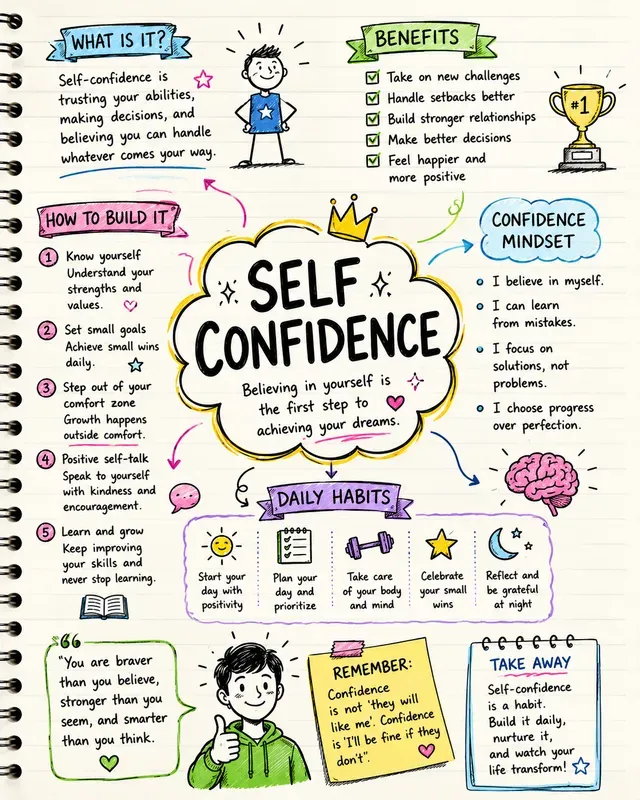 WHAT IS IT?
Self-confidence is
trusting your abilities,
making decisions, and
believing you can handle
whatever comes your way.
BENEFITS
Take on new challenges
Handle setbacks better
Build stronger relationships
Make better decisions
Feel happier and
more positive
#1
HOW TO BUILD IT
1 Know yourself
Understand your
strengths and
values.
2 Set small goals
Achieve small wins
daily.
3 Step out of your
comfort zone
Growth happens
outside comfort.
4 Positive self-talk
Speak to yourself
with kindness and
encouragement.
5 Learn and grow
Keep improving
your skills and
never stop learning.
SELF
CONFIDENCE
Believing in yourself is
the first step to
achieving your dreams.
CONFIDENCE
MINDSET
I believe in myself.
I can learn
from mistakes.
I focus on
solutions, not
problems.
I choose progress
over perfection.
DAILY HABITS
Start your
day with
positivity
Plan your
day and
prioritize
Take care
of your body
and mind
Celebrate
your small
wins
Reflect and
be grateful
at night
"You are braver
than you believe,
stronger than you
seem, and smarter
than you think.
REMEMBER:
Confidence
is not 'they will
like me'. Confidence
is 'I'll be fine if they
don't".
TAKE AWAY
Self-confidence
is a habit.
Build it daily,
nurture it,
and watch your
life transform!